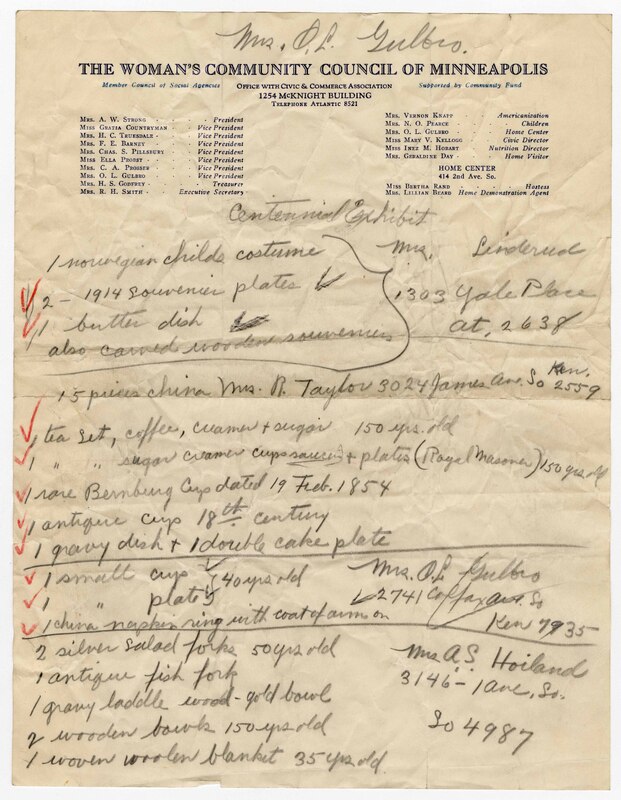 Mrs. O. L. Gulbro.
THE WOMAN'S COMMUNITY COUNCIL OF MINNEAPOLIS
Member Council of Social Agencies OFFICE WITH CIVIC & COMMERCE ASSOCIATION Supported by Community Fund
1254 McKNIGHT BUILDING
TELEPHONE ATLANTIC 8521
MRS. A. W. STRONG President
MISS GRATIA COUNTRYMAN Vice President
MRS. H. C. TRUESDALE Vice President
MRS. F. E. BARNEY Vice President
MRS. CHAS. S. PILLSBURY Vice President
MISS ELLA PROBST Vice President
MRS. C. A. PROSSER Vice President
MRS. O. L. GULBRO Vice President
MRS. H. S. GODFREY Treasurer
MRS. R. H. SMITH Executive Secretary
MRS. VERNON KNAPP Americanization
MRS. N. O. PEARCE Children
MRS. O. L. GULBRO Home Center
MISS MARY V. KELLOGG Civic Director
MISS INEZ M. HOBART Nutrition Director
MRS. GERALDINE DAY Home Visitor
HOME CENTER
414 2ND AVE. SO.
MISS BERTHA RAND Hostess
MRS. LILLIAN BEARD Home Demonstration Agent
Centennial Exhibit
1 norwegian childs costume
2 - 1914 souvenier plates
1 butter dish
also carved wooden souveniers
Mrs. Linderud
1303 Yale Place
At, 2638
15 pieces china Mrs. R. Taylor 3024 James Ave. So Ken. 2559
1 tea set, coffee, creamer + sugar 150 yrs. old
1 " " sugar creamer cups saucers + plates (Royal Masoner) 150 yrs old
1 rare Bernburg Cup dated 19 Feb. 1854
1 antique cup 18th century
1 gravy dish + 1 double cake plate
1 small cup
1 " plate } 40 yrs old
1 china napkin ring with coat of arms on
Mrs. O. L. Gulbro
2741 Colfax Ave. So
Ken 7935
2 silver salad forks 50 yrs old
1 antique fish fork
1 gravy laddle wood-gold bowl
2 wooden bowls 150 yrs old
1 woven woolen blanket 35 yrs old.
Mrs A. S. Hoiland
3146 - 1 Ave, So.
So 4987